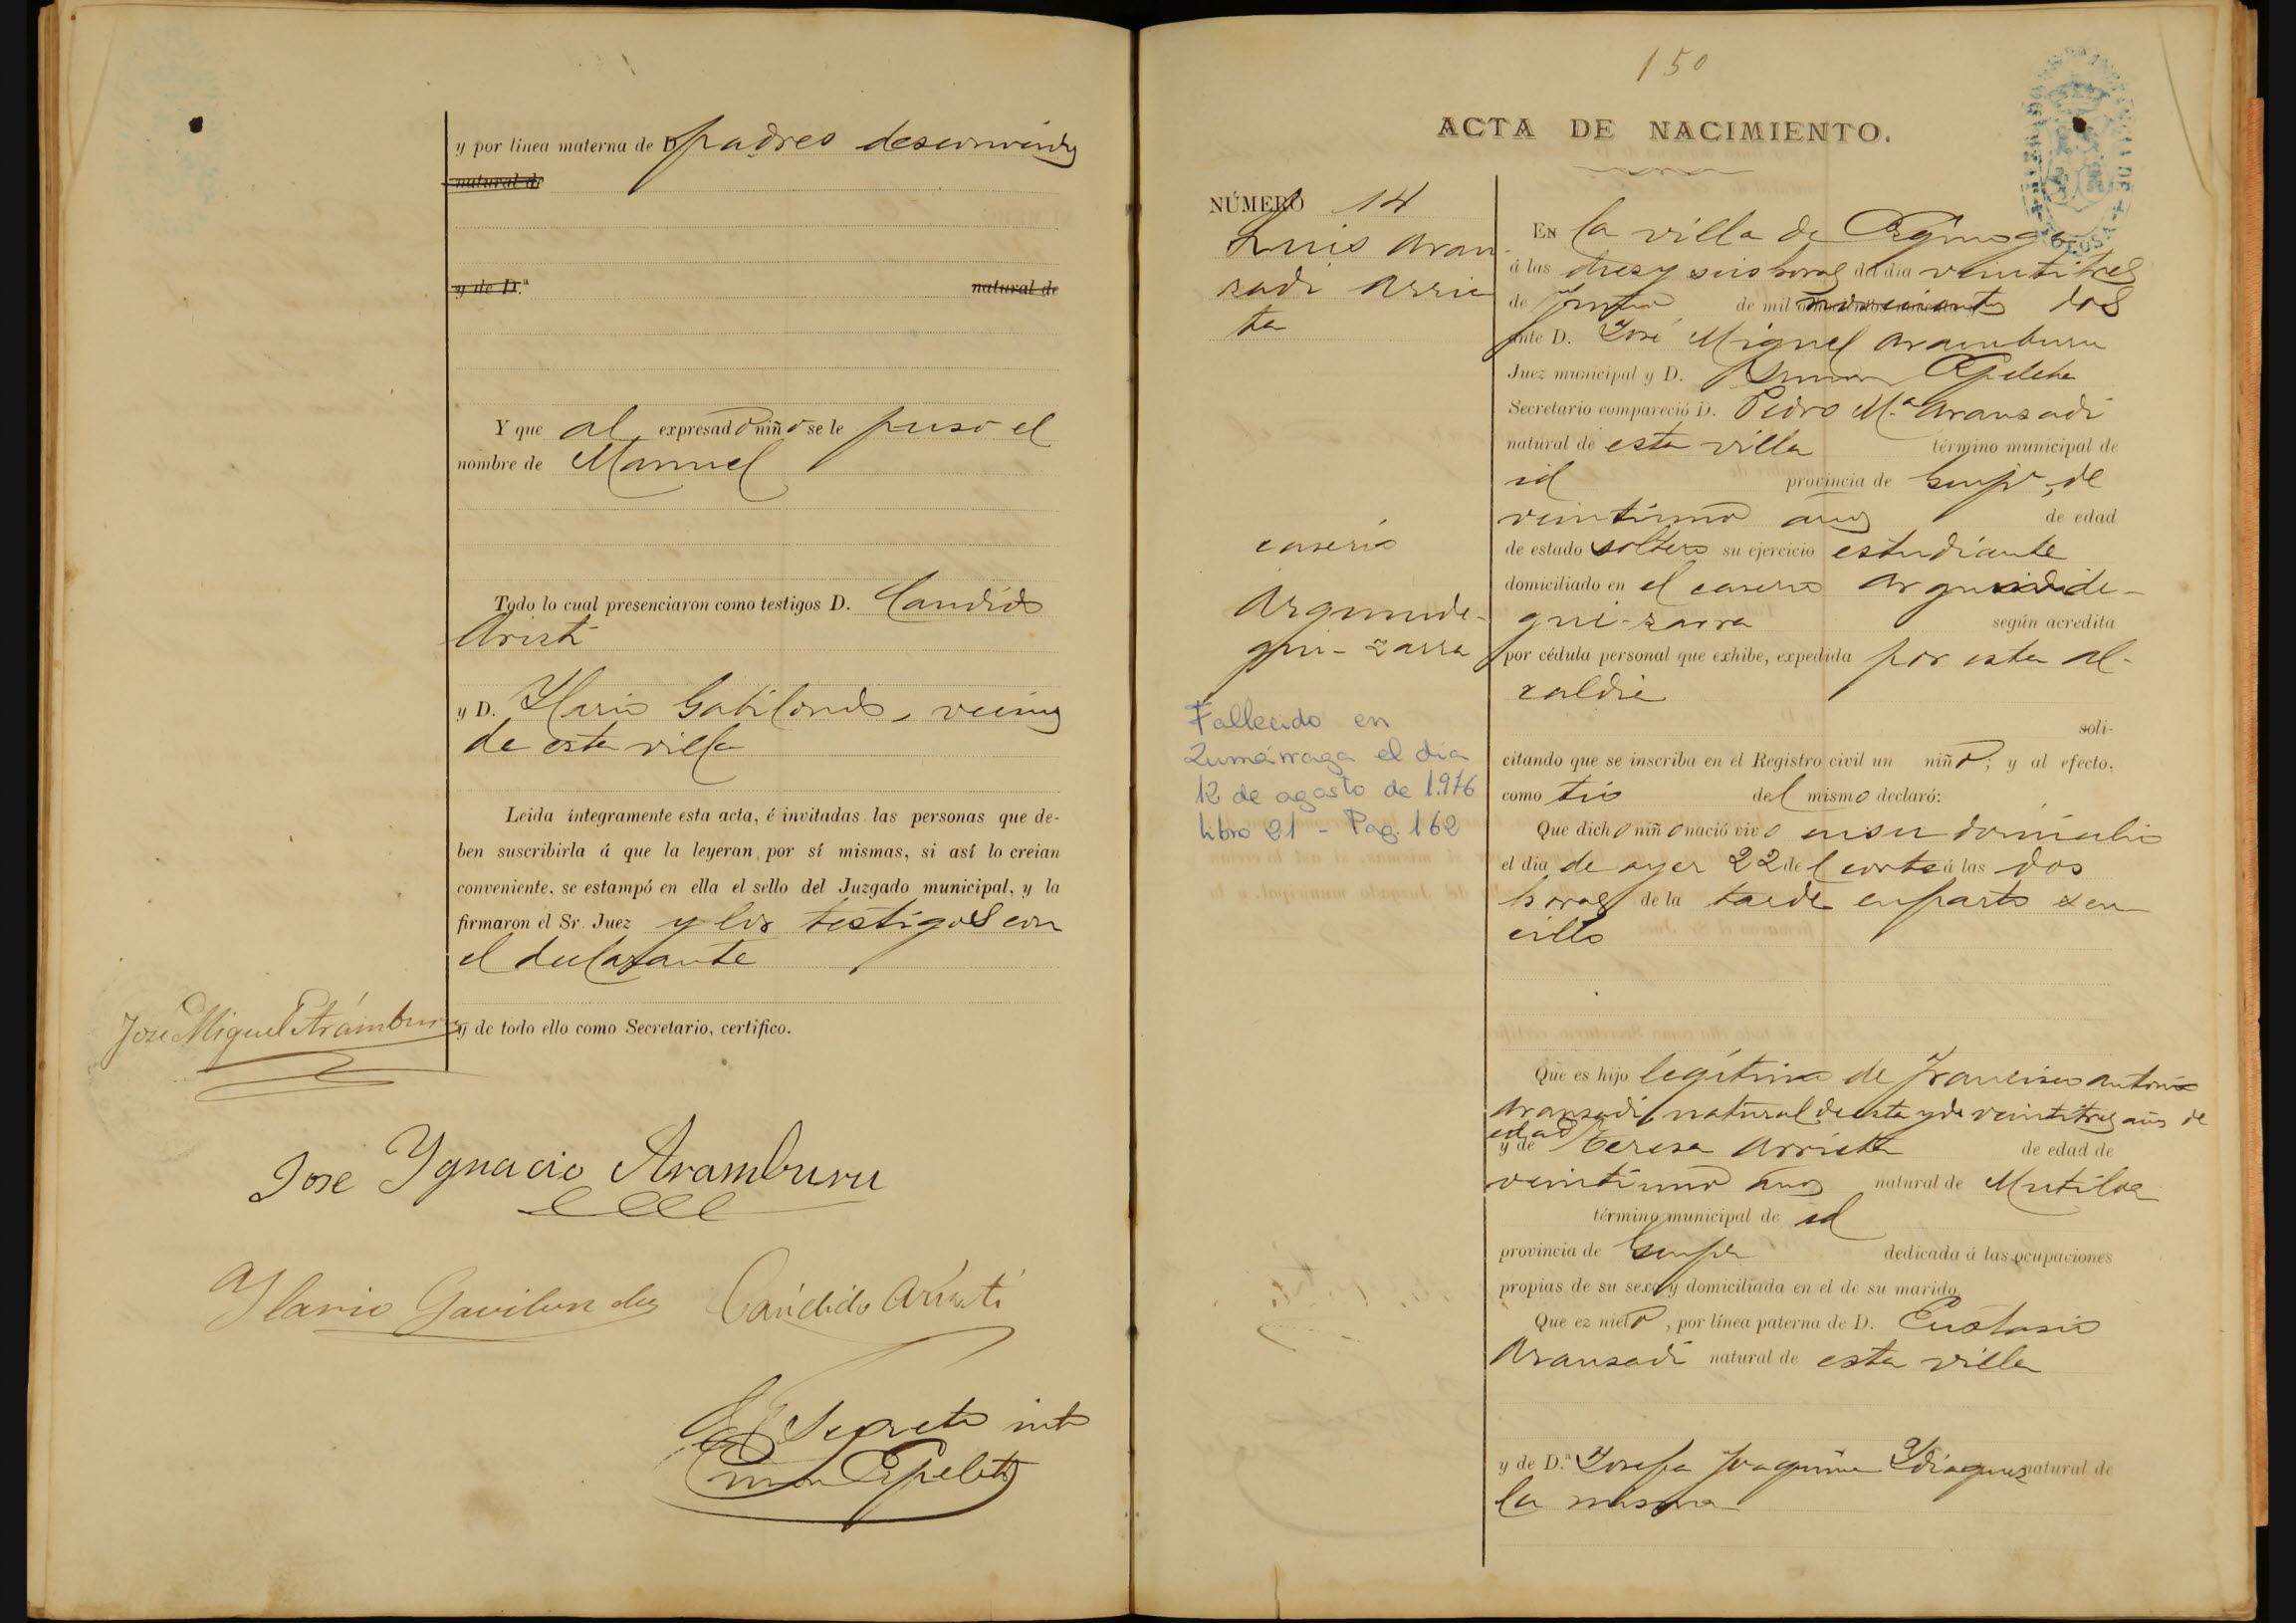 y por línea materna de D padres desconocidos
natural de
y de D.ª natural de
Y que al expresado niño se le puso el
nombre de Manuel
Todo lo cual presenciaron como testigos D. Candido
Aristi
y D. Ylario Gabilondo, vecinos
de esta villa
Leida íntegramente esta acta, é invitadas las personas que de-
ben suscribirla á que la leyeran por sí mismas, si así lo creian
conveniente, se estampó en ella el sello del Juzgado municipal, y la
firmaron el Sr. Juez y los testigos con
el declarante
y de todo ello como Secretario, certifico.
José Miguel Arámburu
Jose Ygnacio Aramburu
Ylario Gavilondo Cándido Aristi
El Secreto into
150
ACTA DE NACIMIENTO.
NÚMERO 14
Luis Aran-
zadi Arrie
ta
caserio
Argurude-
gui-zarra
Fallecido en
Zumárraga el día
12 de agosto de 1.976
Libro 21 - Pag. 162
En la villa de
á las diez y seis horas del dia veintitres
de de mil novecientos dos
ante D. José Miguel Aramburu
Juez municipal y D.
Secretario compareció D. Pedro M.ª Aranzadi
natural de esta villa término municipal de
id provincia de Guipº, de
veintiuno años de edad
de estado soltero su ejercicio estudiante
domiciliado en el caserio
gui-zarra según acredita
por cédula personal que exhibe, expedida por esta al-
caldia
soli-
citando que se inscriba en el Registro civil un niño; y al efecto,
como tio del mismo declaró:
Que dicho niño nació vivo en su domicilio
el día de ayer 22 del corte á las dos
horas de la tarde en parto sen
cillo
Que es hijo legítimo de Francisco Antonio
Aranzadi, natural de esta y de veintitres años de
edad
y de Teresa Arrieta de edad de
veintiuno años natural de Mutiloa
término municipal de id
provincia de Guipª dedicada á las ocupaciones
propias de su sexo y domiciliada en el de su marido
Que ez nieto, por línea paterna de D. Eustasio
Aranzadi natural de esta villa
y de D.ª Josefa Joaquina Ydiaquez natural de
la misma